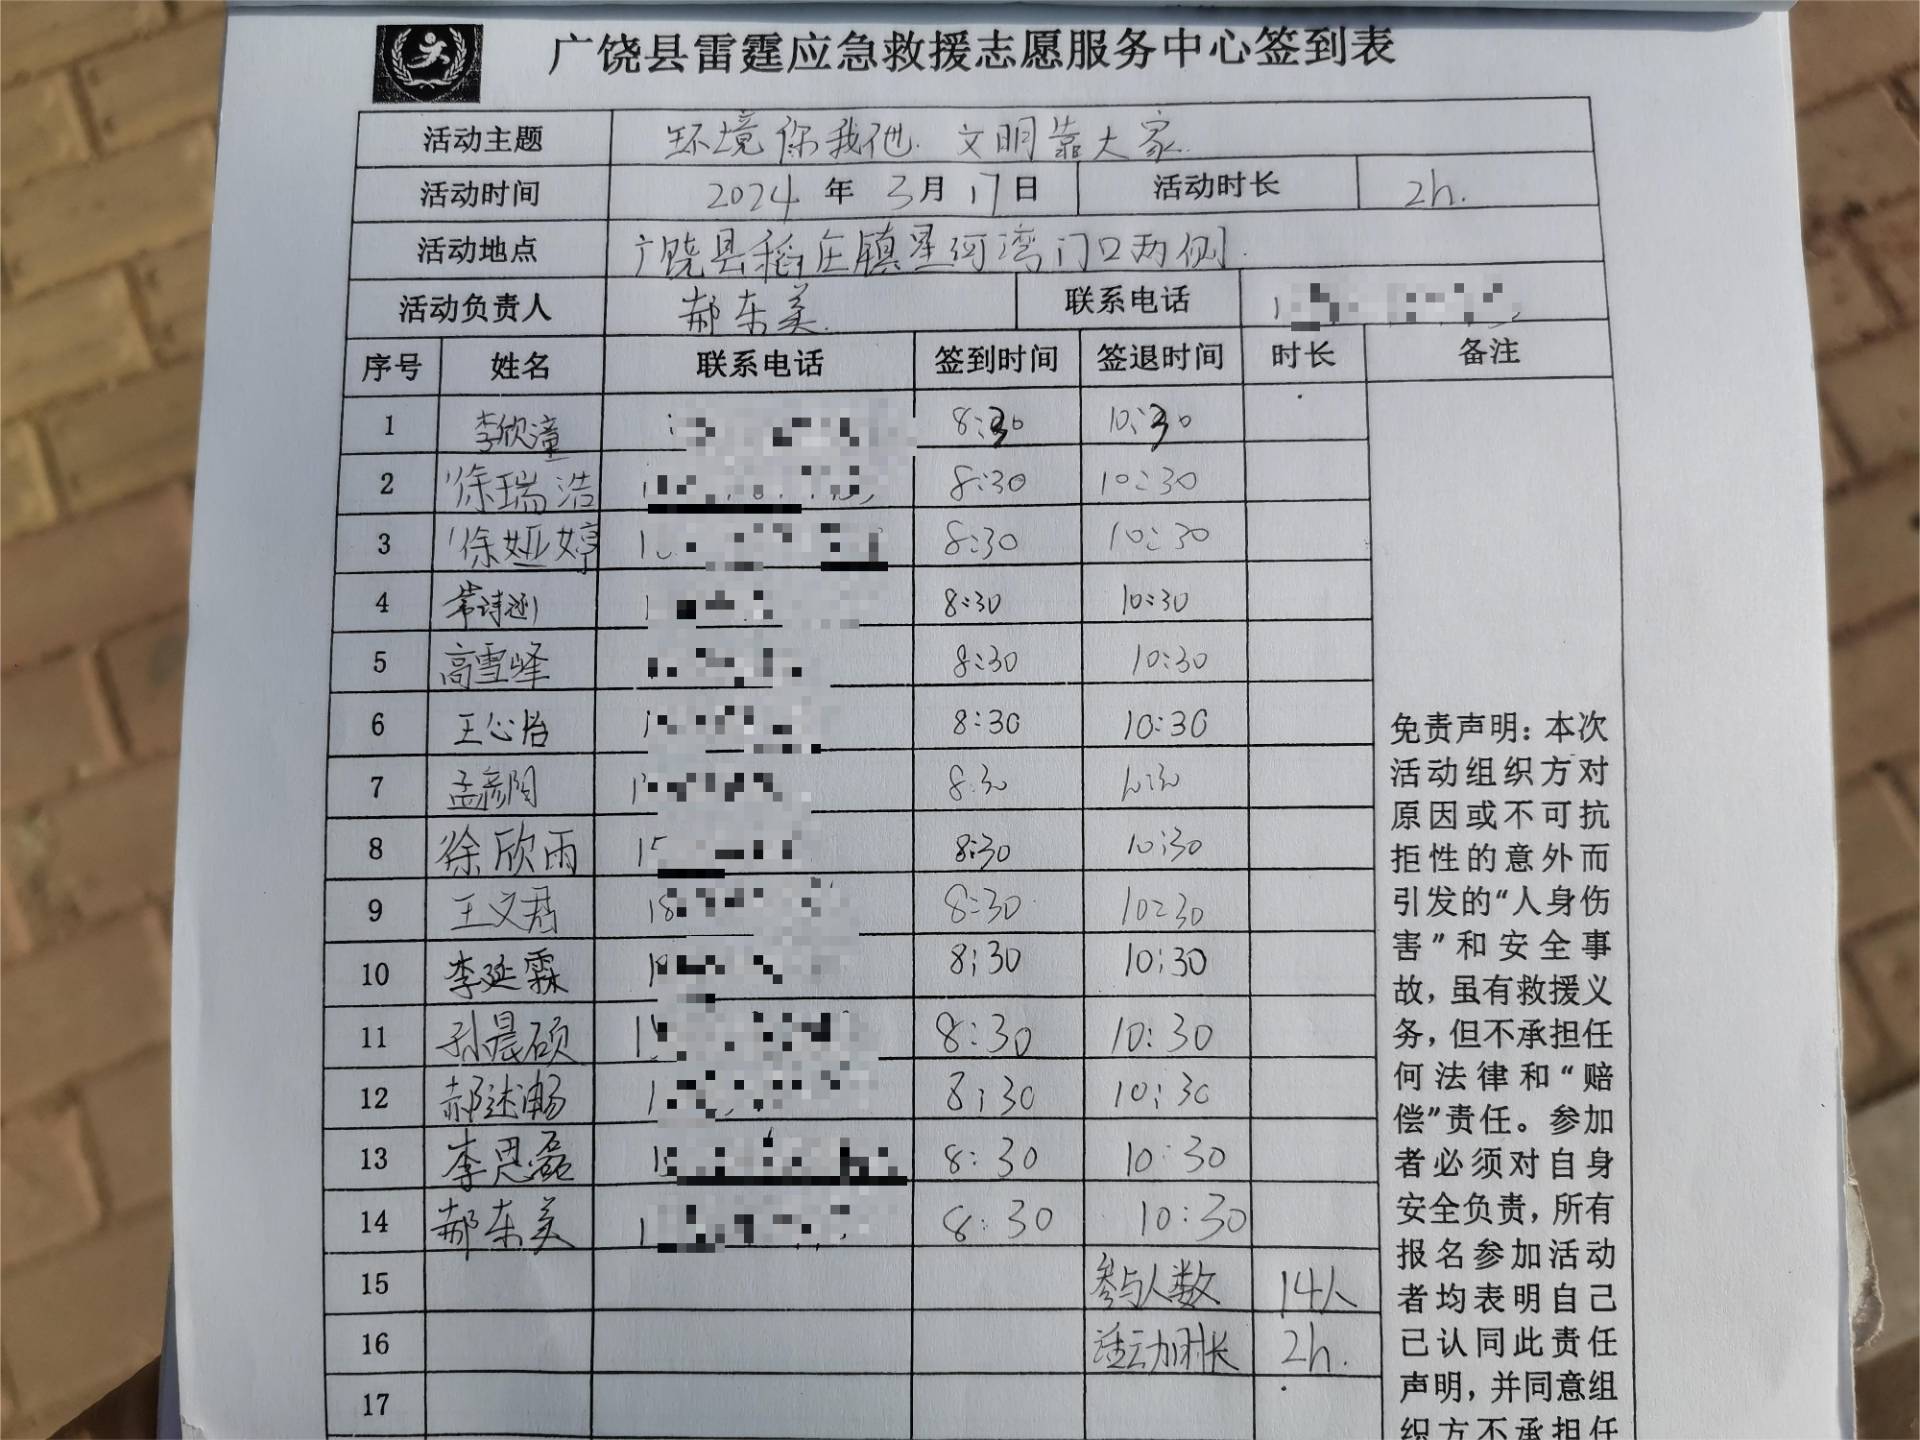 广饶县雷霆应急救援志愿服务中心签到表
活动主题 环境你我他 文明靠大家
活动时间 2024 年 3 月 17 日 活动时长 2h.
活动地点 广饶县稻庄镇星河湾门口两侧
活动负责人 郝东美 联系电话
序号 姓名 联系电话 签到时间 签退时间 时长 备注
1 李欣潼 8:30 10:30
2 徐瑞浩 8:30 10:30
3 徐娅婷 8:30 10:30
4 8:30 10:30
5 高雪峰 8:30 10:30
6 王心怡 8:30 10:30
7 孟彦 8:30 10:30
8 徐欣雨 15 8:30 10:30
9 王文君 18 8:30 10:30
10 李延霖 8:30 10:30
11 孙晨硕 8:30 10:30
12 郝述畅 8:30 10:30
13 李思磊 8:30 10:30
14 郝东美 8:30 10:30
15 参与人数 14人
16 活动时长 2h.
17
免责声明：本次
活动组织方对
原因或不可抗
拒性的意外而
引发的“人身伤
害”和安全事
故，虽有救援义
务，但不承担任
何法律和“赔
偿”责任。参加
者必须对自身
安全负责，所有
报名参加活动
者均表明自己
已认同此责任
声明，并同意组
织方不承担任